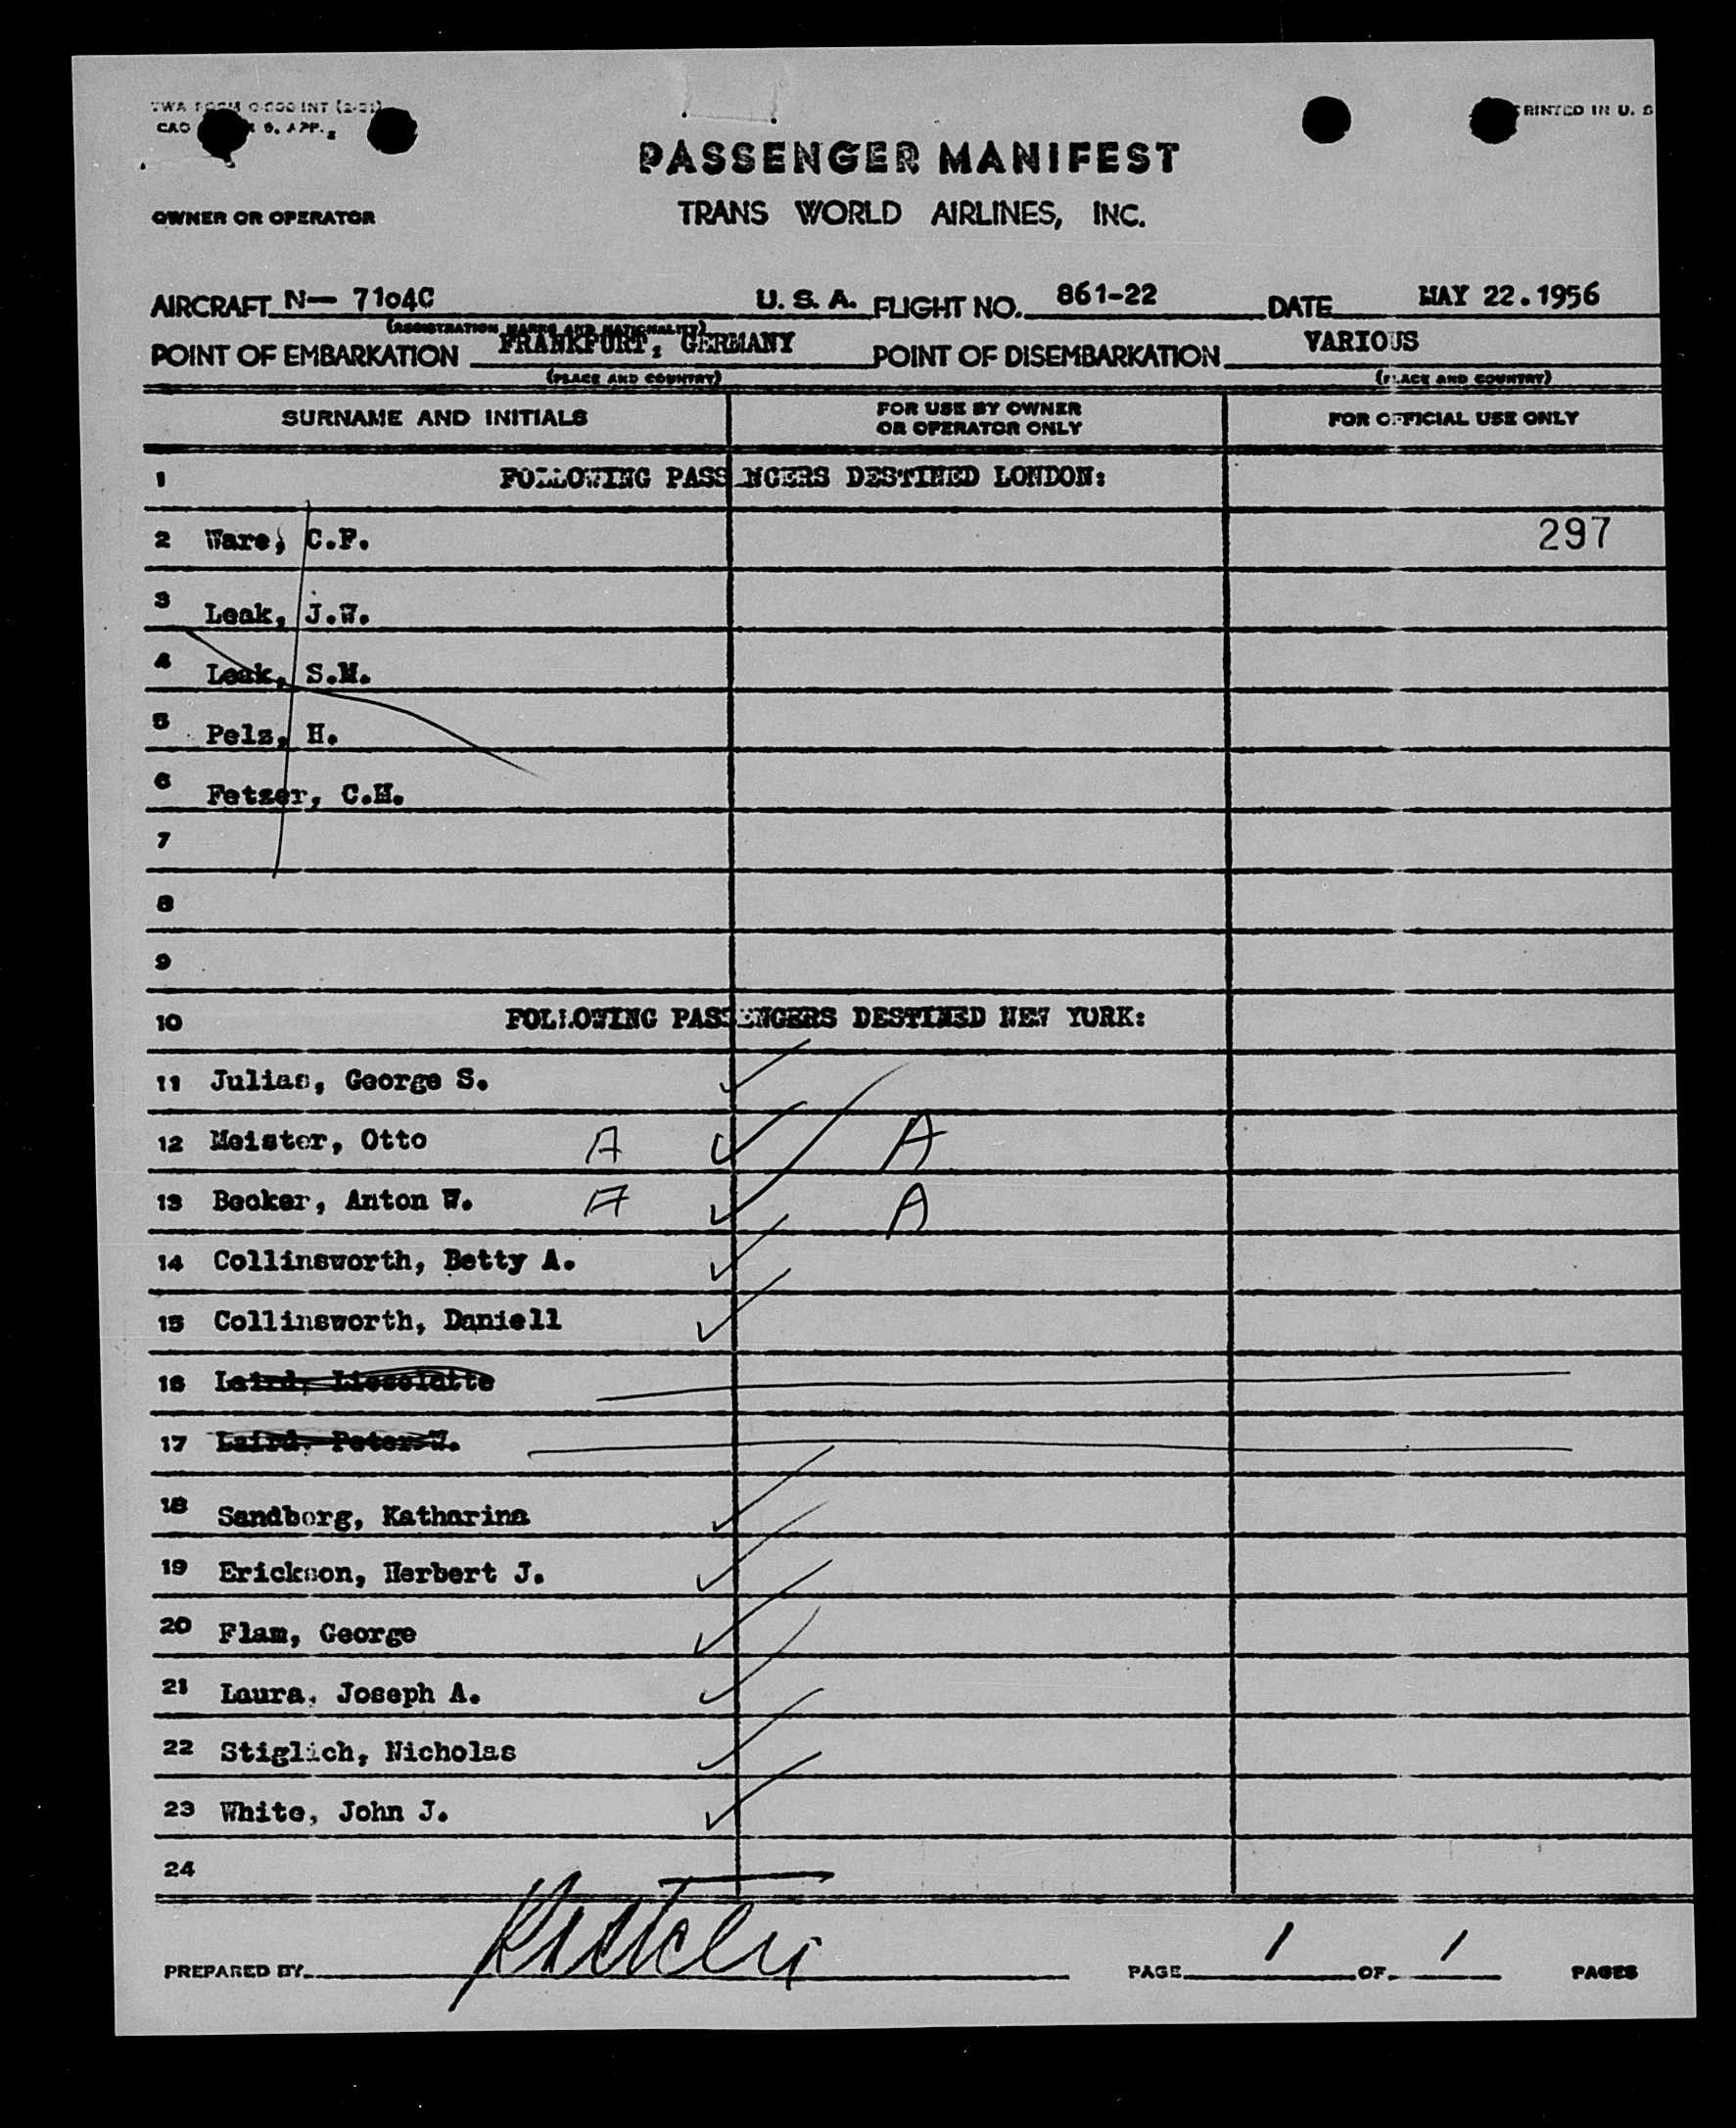 TWA FORM INT
CAO 9. APP. 2
PRINTED IN U. S
PASSENGER MANIFEST
OWNER OR OPERATOR TRANS WORLD AIRLINES, INC.
AIRCRAFT N— 7104C U. S. A. FLIGHT NO. 861-22 DATE MAY 22.1956
(REGISTRATION MARKS AND NATIONALITY)
POINT OF EMBARKATION FRANKFURT, GERMANY POINT OF DISEMBARKATION VARIOUS
(PLACE AND COUNTRY) (PLACE AND COUNTRY)
SURNAME AND INITIALS FOR USE BY OWNER OR OPERATOR ONLY FOR OFFICIAL USE ONLY
1 FOLLOWING PASSENGERS DESTINED LONDON:
2 Ware, C.F. 297
3 Leak, J.W.
4 Leak, S.M.
5 Pelz, H.
6 Fetzer, C.H.
7
8
9
10 FOLLOWING PASSENGERS DESTINED NEW YORK:
11 Julias, George S.
12 Meister, Otto A A
13 Becker, Anton W. A A
14 Collinsworth, Betty A.
15 Collinsworth, Daniell
16 Laird, Lieselotte
17 Laird, Peter W.
18 Sandberg, Katharina
19 Erickson, Herbert J.
20 Flam, George
21 Laura, Joseph A.
22 Stiglich, Nicholas
23 White, John J.
24
PREPARED BY PAGE 1 OF 1 PAGES